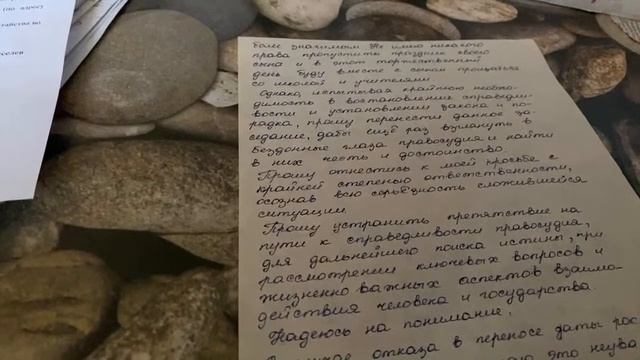 (по адресу
более значимым. Не имею никакого
права пропустить праздник своего
сына и в этот торжественный
день буду вместе с сыном прощаться
со школой и учителями.
Однако, испытывая крайнюю необхо-
димость в восстановлении справедли-
вости и установлении закона и по-
рядка, прошу перенести данное за-
седание, дабы ещё раз взглянуть в
бездонные глаза правосудия и найти
в них честь и достоинство.
Прошу отнестись к моей просьбе с
крайней степенью ответственности,
осознав всю серьёзность сложившейся
ситуации.
Прошу устранить препятствие на
пути к справедливости правосудия,
для дальнейшего поиска истины, при
рассмотрении ключевых вопросов и
жизненно важных аспектов взаимо-
действия человека и государства.
Надеюсь на понимание.
отказа в переносе даты рас
это неува